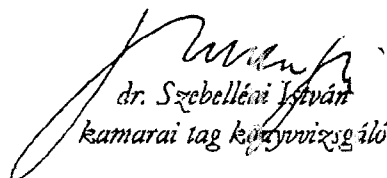 dr. Szebellédi István
kamarai tag könyvvizsgáló